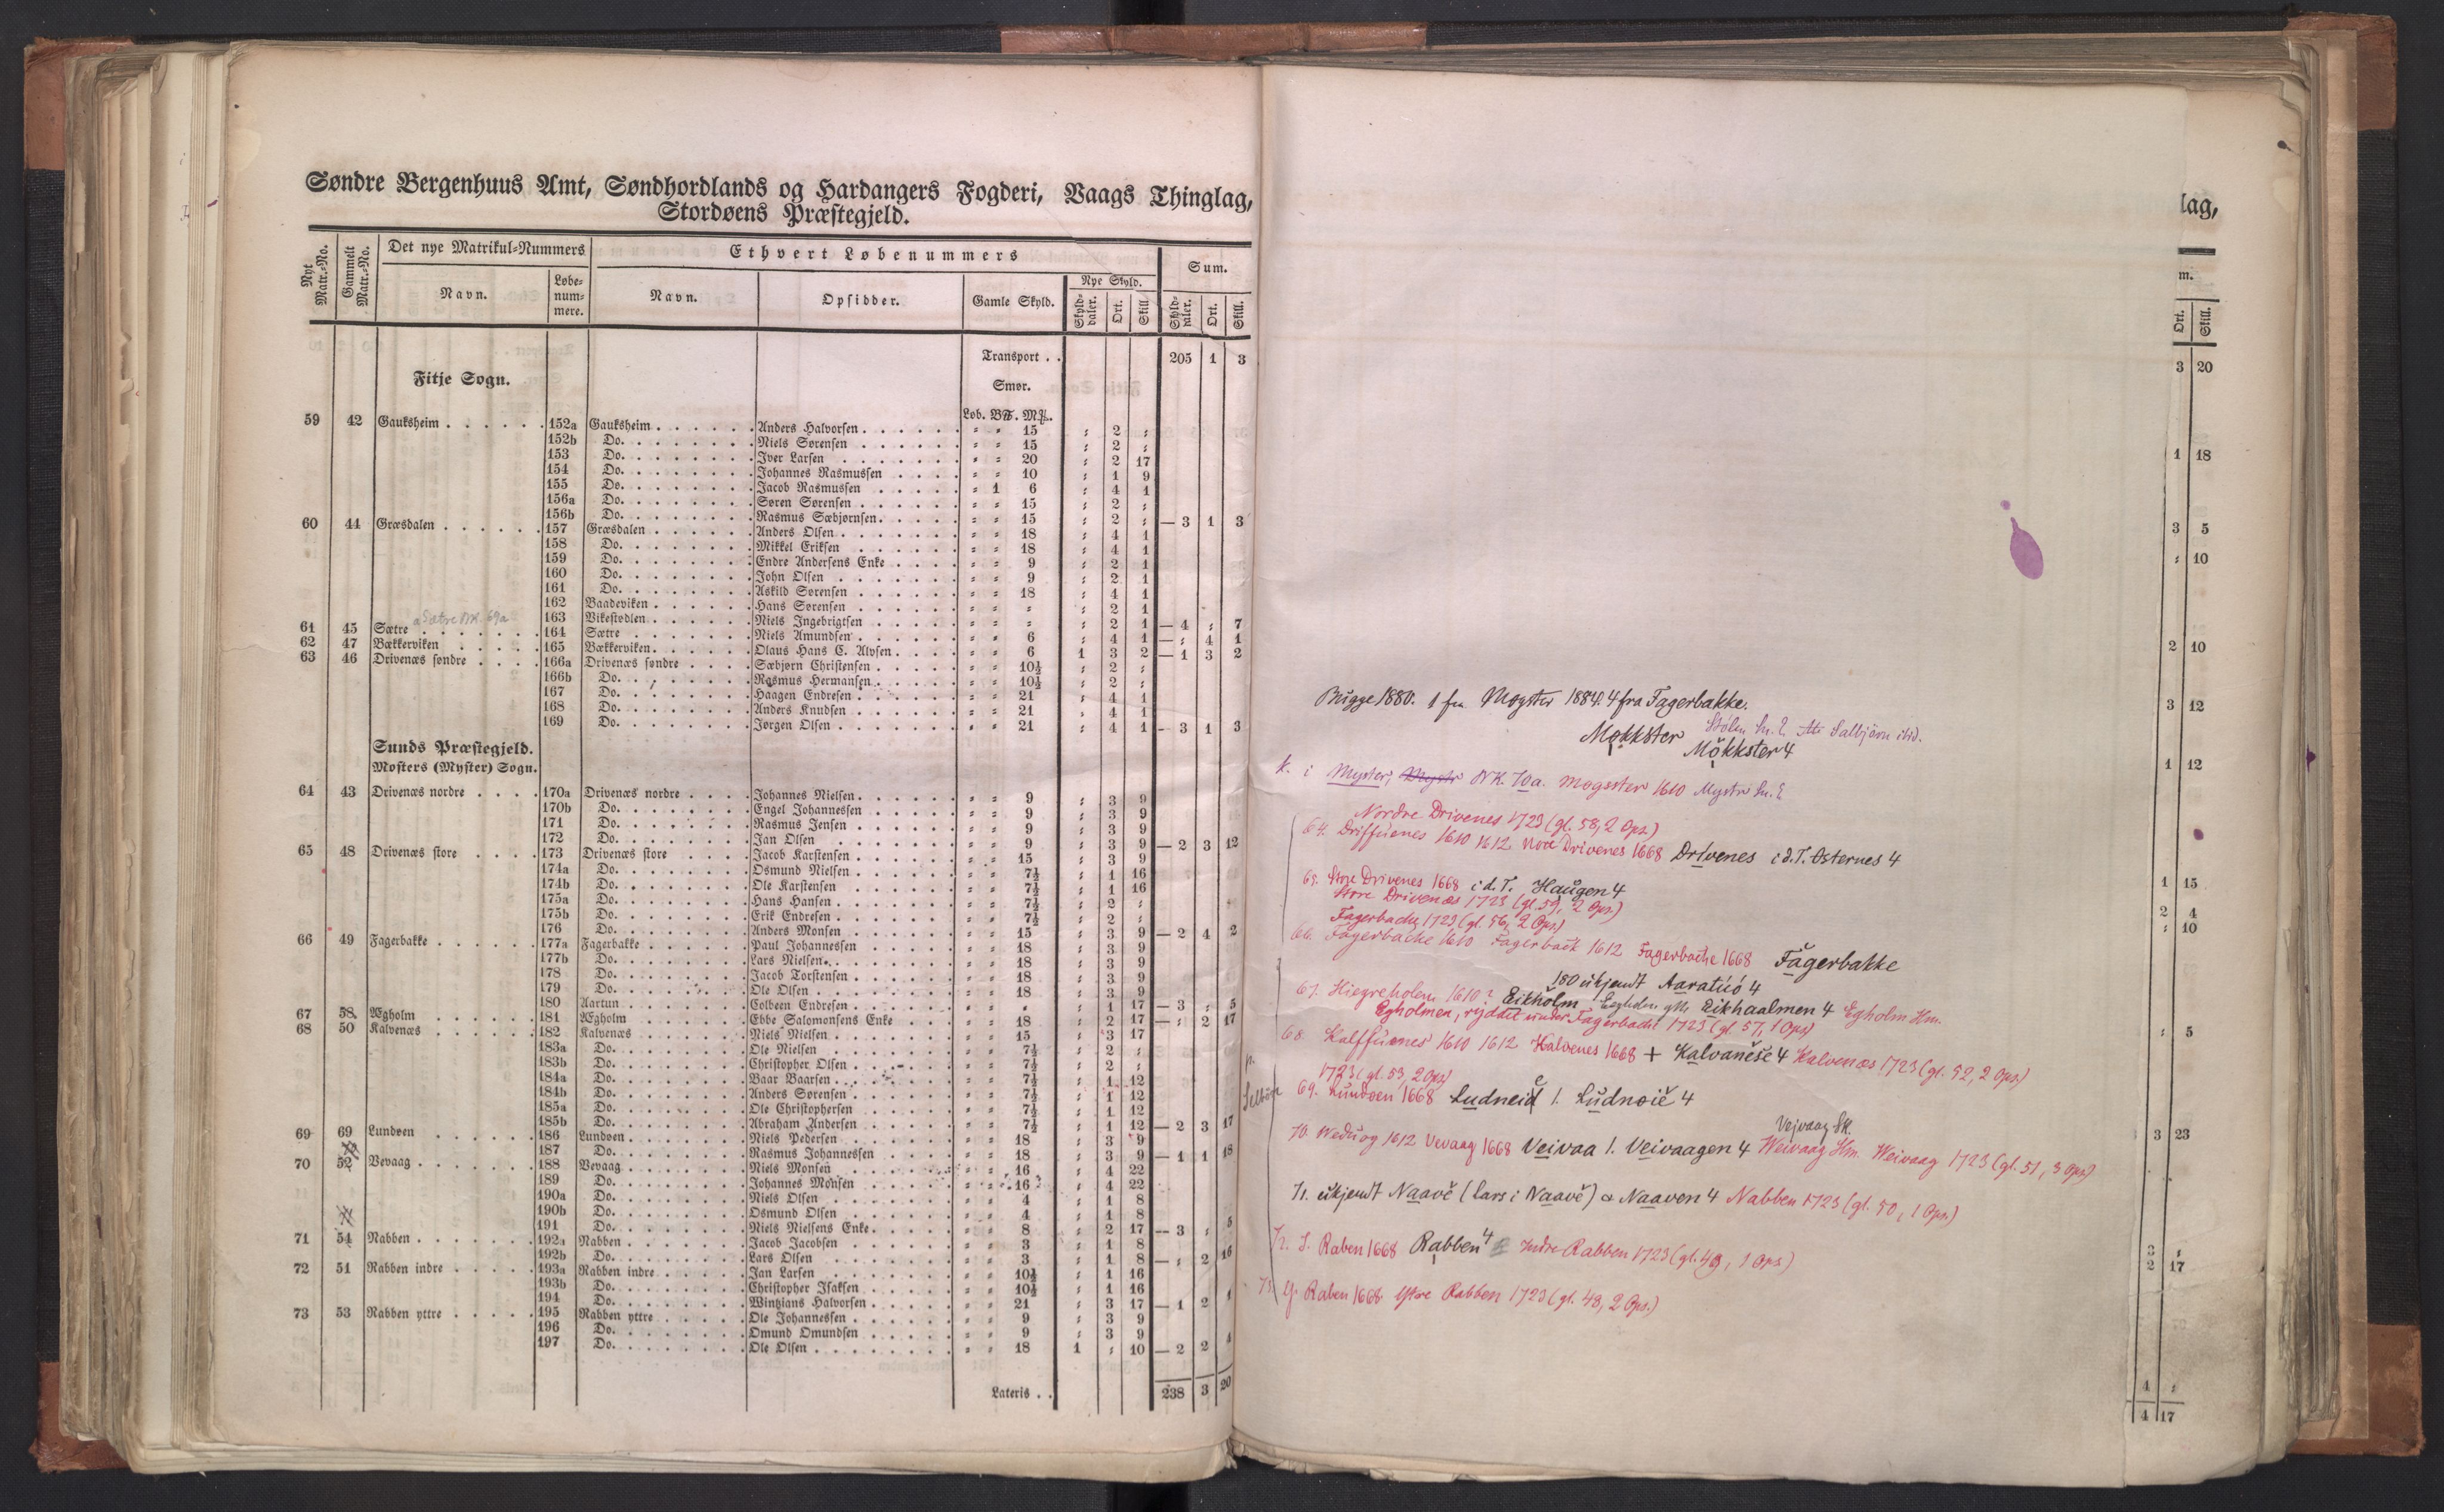 Søndre Bergenhuus Amt, Søndhordlands og Hardangers Fogderi, Vaags Thinglag,
Stordøens Præstegjeld.
Nyt Matr.-No. Gammelt Matr.-No. Det nye Matrikul-Nummers Ethvert Løbenummers Sum.
Navn. Løbe-num-mere. Navn. Opsidder. Gamle Skyld. Nye Skyld. Skyld-daler. Ort. Skill. Skyld-daler. Ort. Skill.
Transport . . 205 1 3
Fitje Sogn. Smør.
Løb. B℔. M℔.
59 42 Gauksheim . . . . . . 152a Gauksheim . . . . . . Anders Halvorsen . . . . . . = = 15 = 2 =
152b Do. . . . . . . . Niels Sørensen . . . . . . = = 15 = 2 =
153 Do. . . . . . . . Iver Larsen . . . . . . = = 20 = 2 17
154 Do. . . . . . . . Johannes Rasmussen . . . . = = 10 = 1 9
155 Do. . . . . . . . Jacob Rasmussen . . . . . = 1 6 = 4 1
156a Do. . . . . . . . Søren Sørensen . . . . . . = = 15 = 2 =
156b Do. . . . . . . . Rasmus Sæbjørnsen . . . . . = = 15 = 2 = — 3 1 3
60 44 Græsdalen . . . . . . 157 Græsdalen . . . . . . Anders Olsen . . . . . . = = 18 = 4 1
158 Do. . . . . . . . Mikkel Eriksen . . . . . . = = 18 = 4 1
159 Do. . . . . . . . Endre Andersens Enke . . . . = = 9 = 2 1
160 Do. . . . . . . . John Olsen . . . . . . = = 9 = 2 1
161 Do. . . . . . . . Askild Sørensen . . . . . . = = 18 = 4 1
162 Baadeviken . . . . . . Hans Sørensen . . . . . . = = = = 2 1
a Sætre NK. 69a
163 Vikestødlen . . . . . . Niels Ingebrigtsen . . . . . = = = = 2 1 — 4 = 7
61 45 Sætre . . . . . . . 164 Sætre . . . . . . . Niels Amundsen . . . . . . = = 6 = 4 1 — = 4 1
62 47 Bækkerviken . . . . . 165 Bækkerviken . . . . . . Olaus Hans C. Alvsen . . . . = = 6 1 3 2 — 1 3 2
63 46 Drivenæs søndre . . . . 166a Drivenæs søndre . . . . Sæbjørn Christensen . . . . . = = 10½ = 2 =
166b Do. . . . . . . . Rasmus Hermansen . . . . . = = 10½ = 2 =
167 Do. . . . . . . . Haagen Endresen . . . . . . = = 21 = 4 1
168 Do. . . . . . . . Anders Knudsen . . . . . . = = 21 = 4 1
169 Do. . . . . . . . Jørgen Olsen . . . . . . = = 21 = 4 1 - 3 1 3
Sunds Præstegjeld.
Mosters (Myster) Sogn.
64 43 Drivenæs nordre . . . . 170a Drivenæs nordre . . . . Johannes Nielsen . . . . . . = = 9 = 3 9
170b Do. . . . . . . . Engel Johannessen . . . . . = = 9 = 3 9
171 Do. . . . . . . . Rasmus Jensen . . . . . . = = 9 = 3 9
172 Do. . . . . . . . Jan Olsen . . . . . . = = 9 = 3 9 — 2 3 12
65 48 Drivenæs store . . . . 173 Drivenæs store . . . . Jacob Karstensen . . . . . . = = 15 = 3 9
174a Do. . . . . . . . Osmund Nielsen . . . . . . = = 7½ = 1 16
174b Do. . . . . . . . Ole Karstensen . . . . . . = = 7½ = 1 16
175a Do. . . . . . . . Hans Hansen . . . . . . = = 7½ = 2 =
175b Do. . . . . . . . Erik Endresen . . . . . . = = 7½ = 2 =
176 Do. . . . . . . . Anders Monsen . . . . . . = = 15 = 3 9 — 2 4 2
66 49 Fagerbakke . . . . . . 177a Fagerbakke . . . . . . Paul Johannessen . . . . . = = 18 = 3 9
177b Do. . . . . . . . Lars Nielsen . . . . . . = = 18 = 3 9
178 Do. . . . . . . . Jacob Torstensen . . . . . . = = 18 = 3 9
179 Do. . . . . . . . Ole Olsen . . . . . . = = 18 = 3 9
180 Aartun . . . . . . . Colbeen Endresen . . . . . = = = = 1 17 — 3 = 5
67 58 Ægholm . . . . . . 181 Ægholm . . . . . . Ebbe Salomonsens Enke . . . = = 18 = 2 17 — = 2 17
68 50 Kalvenæs . . . . . . 182 Kalvenæs . . . . . . Niels Nielsen . . . . . . = = 15 = 3 17
183a Do. . . . . . . . Ole Nielsen . . . . . . = = 7½ = 2 =
183b Do. . . . . . . . Christopher Olsen . . . . . = = 7½ = 2 =
184a Do. . . . . . . . Baar Baarsen . . . . . . = = 7½ = 1 12
184b Do. . . . . . . . Anders Sørensen . . . . . . = = 7½ = 1 12
185a Do. . . . . . . . Ole Christophersen . . . . . = = 7½ = 1 12
185b Do. . . . . . . . Abraham Andersen . . . . . = = 7½ = 1 12 — 2 3 17
69 69 Lundøen . . . . . . 186 Lundøen . . . . . . Niels Pedersen . . . . . . = = 18 = 3 9
187 Do. . . . . . . . Rasmus Johannessen . . . . = = 18 = 3 9 — 1 1 18
70 52 Vevaag . . . . . . . 188 Vevaag . . . . . . . Niels Monsen . . . . . . = = 16 = 4 22
189 Do. . . . . . . . Johannes Monsen . . . . . = = 16 = 4 22
190a Do. . . . . . . . Niels Olsen . . . . . . = = 4 = 1 8
190b Do. . . . . . . . Osmund Olsen . . . . . . = = 4 = 1 8
191 Do. . . . . . . . Niels Nielsens Enke . . . . . = = 8 = 2 17 — 3 = 5
71 54 Nabben . . . . . . . 192a Nabben . . . . . . . Jacob Jacobsen . . . . . . = = 3 = 1 8
192b Do. . . . . . . . Lars Olsen . . . . . . = = 3 = 1 8 — = 2 16
72 51 Rabben indre . . . . . 193a Rabben indre . . . . . Jan Larsen . . . . . . = = 10½ = 1 16
193b Do. . . . . . . . Christopher Isaksen . . . . . = = 10½ = 1 16
194 Do. . . . . . . . Wintzians Halvorsen . . . . . = = 21 = 3 17 — 1 2 1
73 53 Rabben yttre . . . . . 195 Rabben yttre . . . . . Ole Johannessen . . . . . . = = 9 = 3 9
196 Do. . . . . . . . Omund Omundsen . . . . . = = 9 = 3 9
197 Do. . . . . . . . Ole Olsen . . . . . . = = 18 1 = 10 — 2 2 4
Lateris . . 238 3 20
Bugge 1880. 1 fra Møgster 1884. 4 fra Fagerbakke.
Stølen
Møkkster
Møkkster 4
k. i Myster, NK. 70a. Mogster 1610
Nordre Drivenes 1723 (gl. 58, 2 Ops.)
64. Driffuenes 1610 1612 Nore Drivenes 1668 Drivenes i d. T. Osternes 4
65. Store Drivenes 1668 i d. T. Haugen 4
Store Drivenæs 1723 (gl. 59, 2 Ops)
Fagerbache 1723 (gl. 56, 2 Ops)
66. Fagerbache 1610 Fagerback 1612 Fagerbache 1668 Fagerbakke
180 ukjendt Aaratuó 4
67. Hiegreholm 1610? Eikholm Eikhaalmen 4 Egholm Hm.
Egholmen, ryddet under Fagerbache 1723 (gl. 57, 1 Ops)
68. Kalffuenes 1610 1612 Halvenes 1668 + Kalvanese 4 Kalvenæs 1723 (gl. 52, 2 Ops.)
1723 (gl. 53, 2 Ops)
69. Lundøen 1668 Ludneid l. Ludnoië 4
Vejvaag SK.
70. Weduog 1612 Vevaag 1668 Veivaa l. Veivaagen 4 Weivaag Hm. Weivaag 1723 (gl. 51, 3 Ops)
71. ukjendt Naavë (Lars i Naavë) a Naaven 4 Nabben 1723 (gl. 50, 1 Ops.)
72. I. Raben 1668 Rabben 4 Indre Rabben 1723 (gl. 49, 1 Ops)
73. Y. Raben 1668 Ytre Rabben 1723 (gl. 48, 2 Ops.)
lag,
m.
Ort. Skill.
3 20
1 18
3 5
= 10
2 10
3 12
1 12
1 15
2 4
= 10
= 5
3 23
3 =
2 17
4 =
4 17